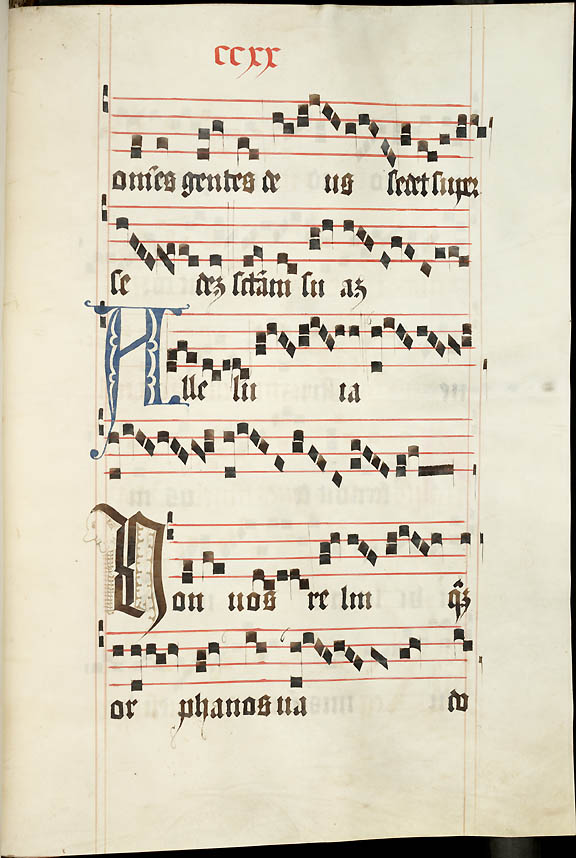 ccxx
om̄es gentes de us sedet super
se dez sctām su aʒ
Alle lu ia
Non uos re lin q̄ʒ
or phanos ua do